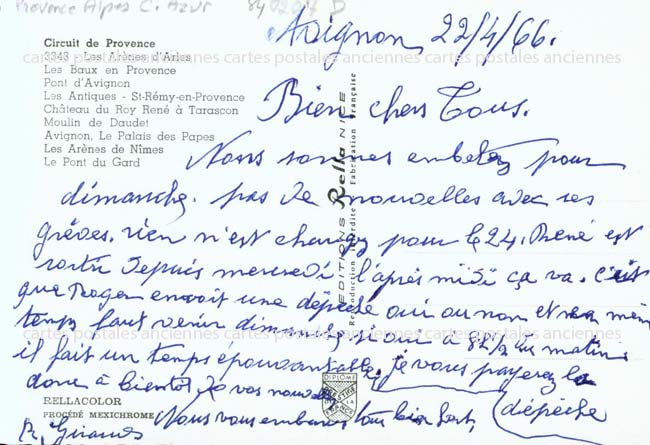 Provence Alpes C. Azur
Avignon 22/4/66.
Circuit de Provence
3343 - Les Arènes d'Arles
Les Baux en Provence
Pont d'Avignon
Les Antiques - St-Rémy-en-Provence
Château du Roy René à Tarascon
Moulin de Daudet
Avignon, Le Palais des Papes
Les Arènes de Nîmes
Le Pont du Gard
cartes postales anciennes cartes postales anciennes cartes postales anciennes
Bien chers Tous.
Nous sommes embetez pour
dimanche. pas de nouvelles avec ces
grèves. rien n'est changez pour le 24. René est
sortie depuis mercredi l'après midi ça va.
que Roger envoit une dépeche oui ou non et en même
temps faut venir dimanche si oui à 8h1/2 du matin.
il fait un temps epouvantable. Je vous payerez la
dépèche
donc à bientot de vos nouvelles
Nous vous embrassons tous bien fort.
EDITIONS Rella NICE
Reproduction interdite - Fabrication Française
DIPLOME
PRESTIGE
DE LA
FRANCE
RELLACOLOR
PROCÉDÉ MEXICHROME